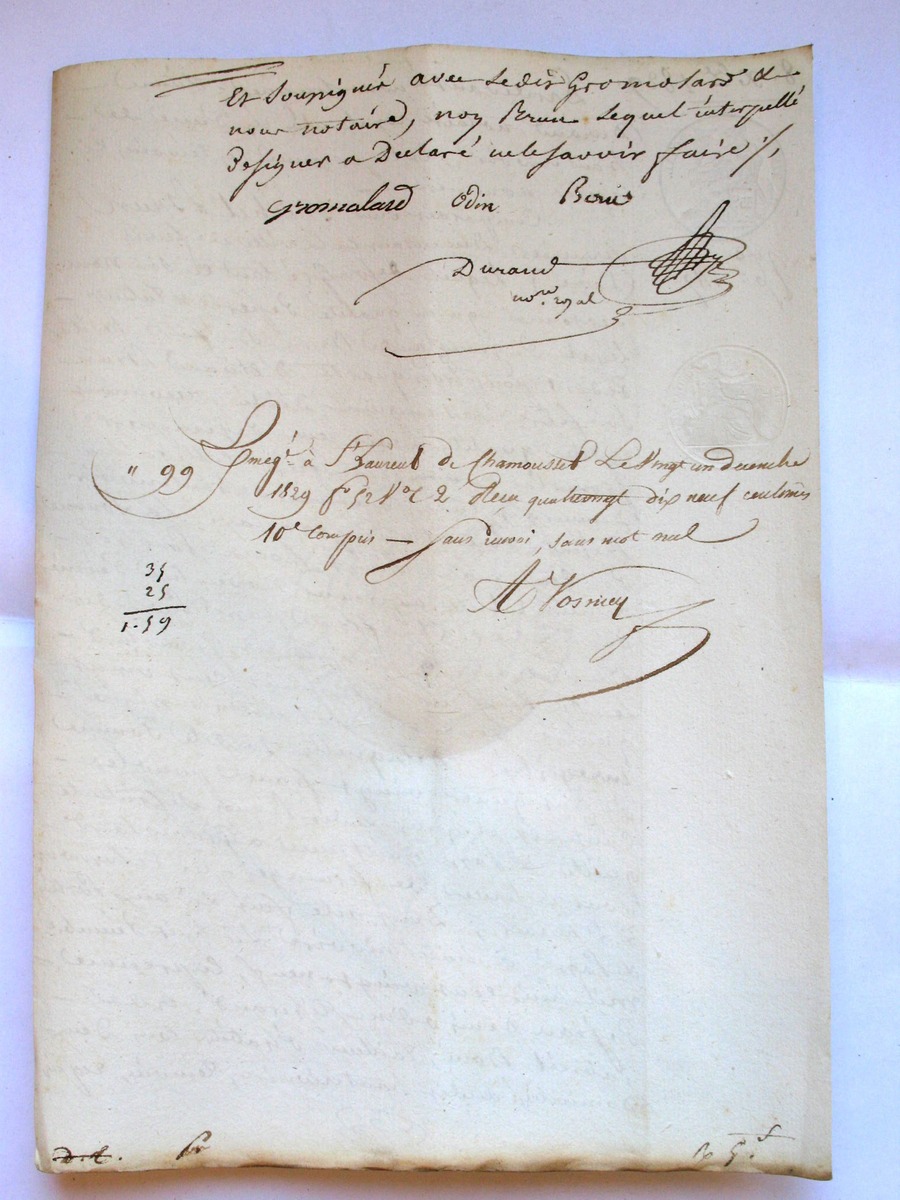 Et soussigné avec ledit Gromolard &
nous notaire, non Brun lequel interpellé
de signer a Declaré ne le savoir faire ·/,
Gromolard Odin
Durand
no.re royal
" 99 à St Laurent de Chamousset Le vingt un decembre
1829 fo 52 Vo C 2. Reçu quatrevingt dix neuf centimes
10e Compris — Sans renvoi, sans mot nul
35
25
1-59